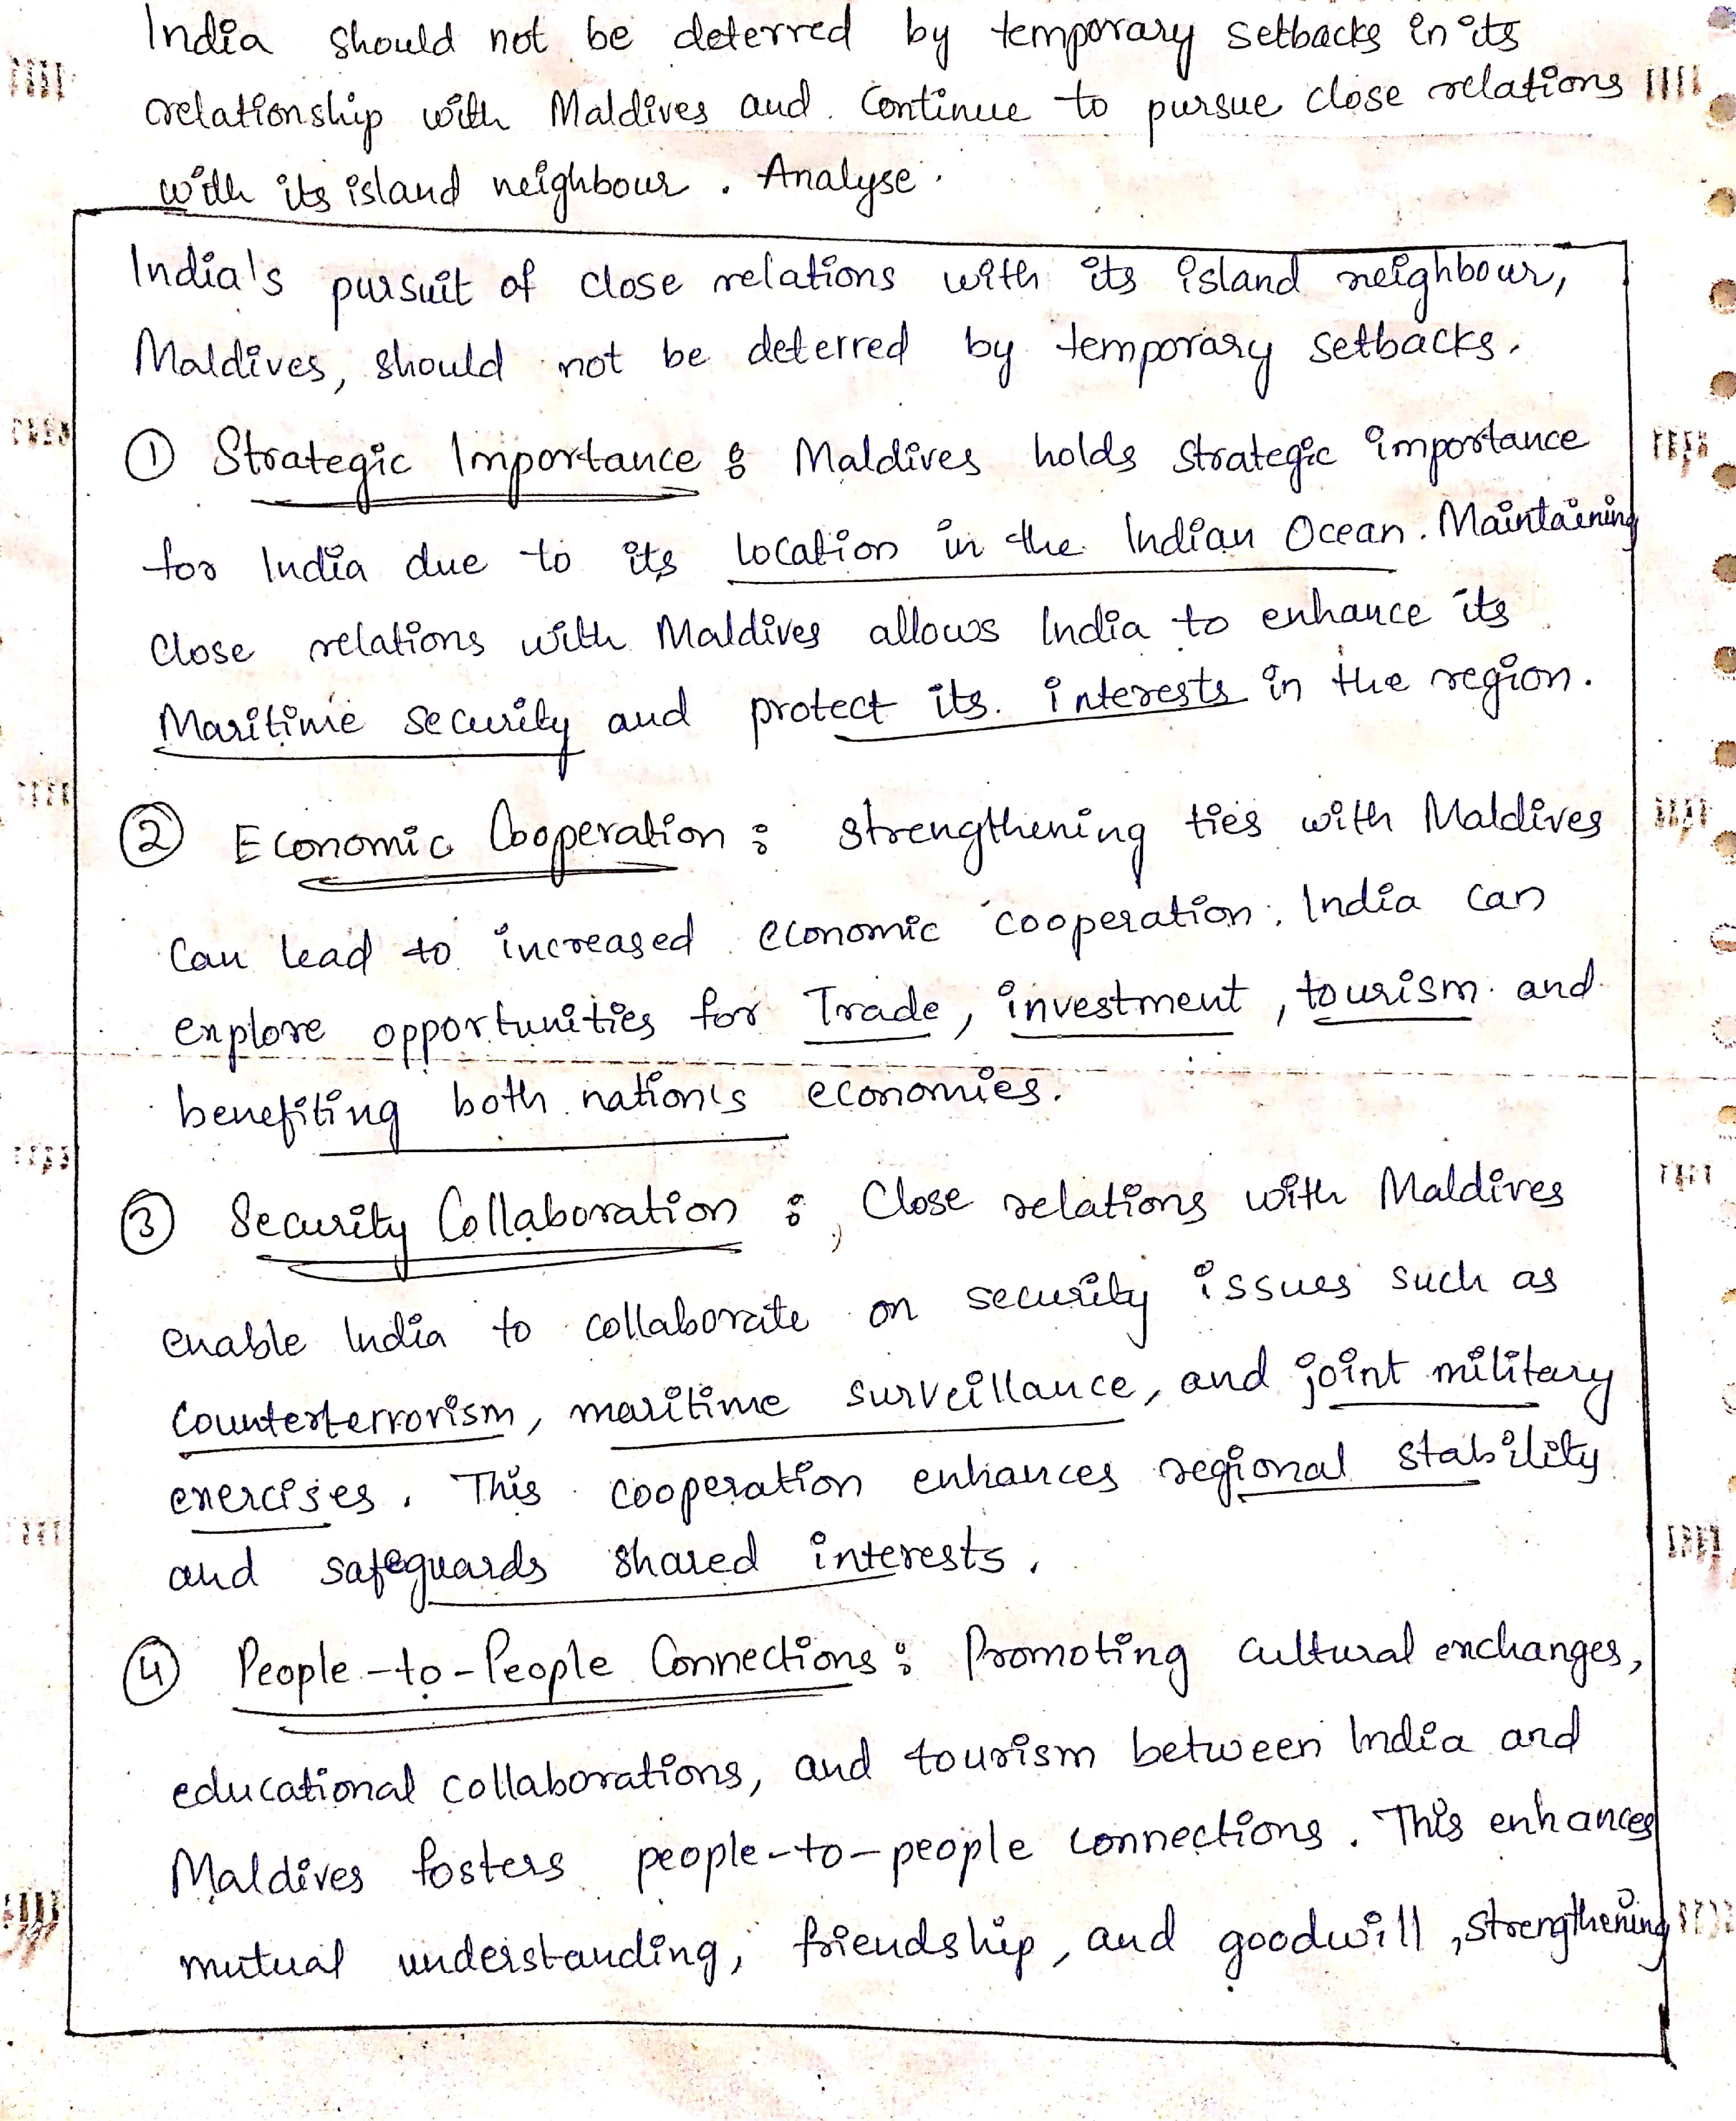 India should not be deterred by temporary setbacks in its
relationship with Maldives and continue to pursue close relations
with its island neighbour. Analyse.
India's pursuit of close relations with its island neighbour,
Maldives, should not be deterred by temporary setbacks.
① Strategic Importance : Maldives holds strategic importance
for India due to its location in the Indian Ocean. Maintaining
close relations with Maldives allows India to enhance its
Maritime security and protect its interests in the region.
② Economic Cooperation : strengthening ties with Maldives
can lead to increased economic cooperation. India can
explore opportunities for Trade, investment, tourism and
benefiting both nation's economies.
③ Security Collaboration : Close relations with Maldives
enable India to collaborate on security issues such as
counterterrorism, maritime surveillance, and joint military
exercises. This cooperation enhances regional stability
and safeguards shared interests.
④ People-to-People Connections : Promoting cultural exchanges,
educational collaborations, and tourism between India and
Maldives fosters people-to-people connections. This enhances
mutual understanding, friendship, and goodwill, strengthening